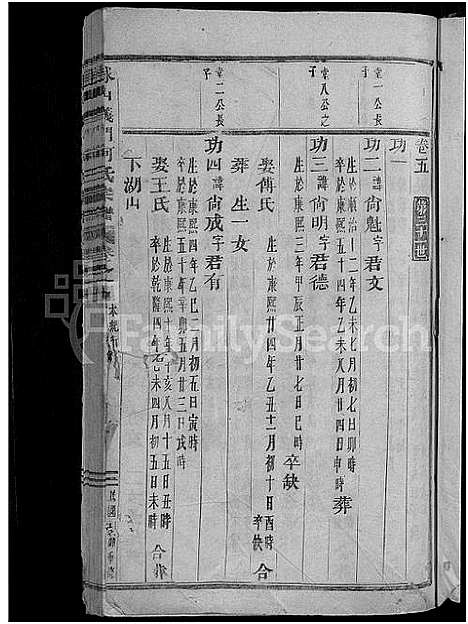 卷五
第三十一世
幸一公長子
功一
功二諱尙魁字君文
生於順治十二年乙未七月初七日卯時
康熙五十四年乙未八月廿四日申時 葬
幸八公之子
功三諱尙明字君德
生於康熙三年甲辰正月廿七日巳時 卒缺
娶傅氏
生於康熙廿四年乙丑十一月初十日酉時
卒缺 合
葬 生一女
幸二公長子
功四諱尙成字君有
生於康熙四年乙巳八月初五日寅時
卒於康熙五十年辛卯五月廿三日戌時
娶王氏
生於康熙十年辛亥八月十五日丑時
卒於乾隆四年己未四月初五日未時 合葬
下湖山
義門何氏宗譜
民國
FamilySearch